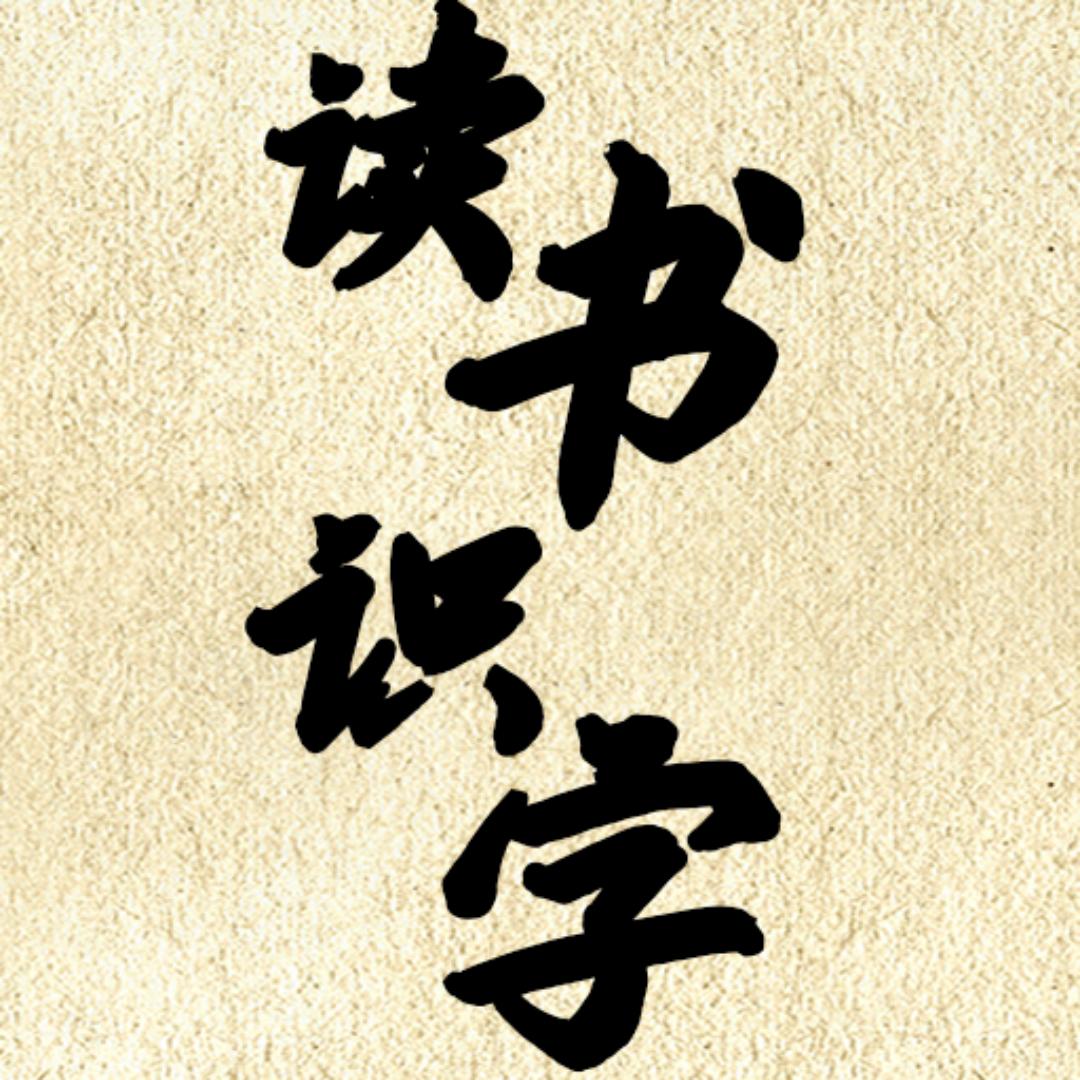 读书识字